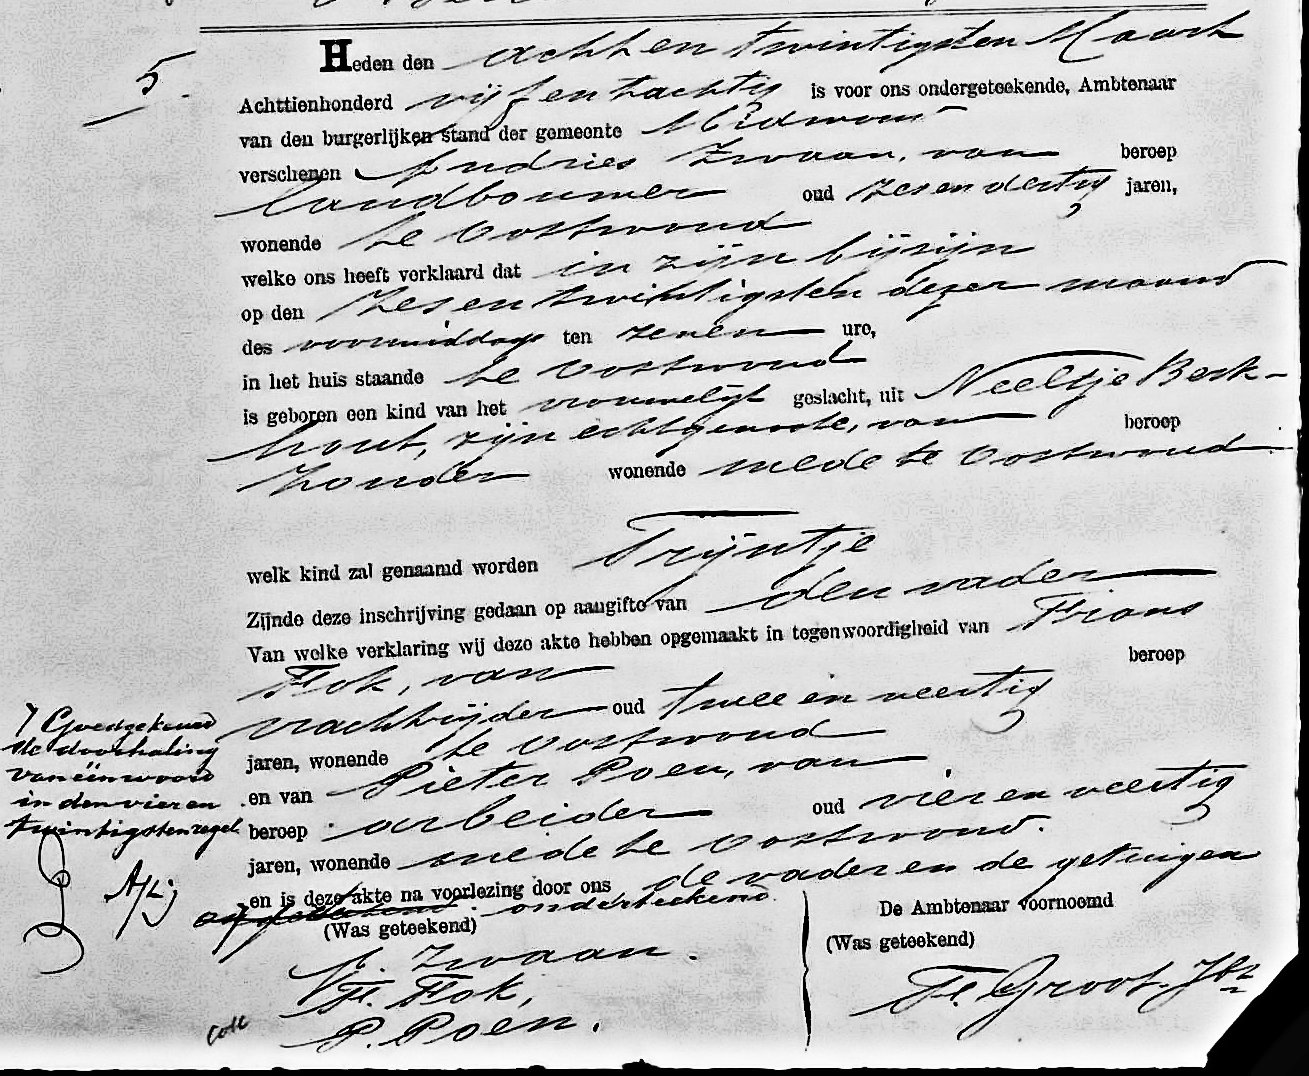 5.
Heden den acht en twintigsten Maart
Achttienhonderd vijf en tachtig is voor ons ondergeteekende, Ambtenaar
van den burgerlijken stand der gemeente Midwoud
verschenen Andries Zwaan, van beroep
landbouwer oud zes en dertig jaren,
wonende te Oostwoud
welke ons heeft verklaard dat in zijn bijzijn
op den zes en twintigsten dezer maand
des voormiddags ten zeven ure,
in het huis staande te Oostwoud
is geboren een kind van het vrouwelijk geslacht, uit Neeltje Berk-
hout, zijn echtgenoote, van beroep
zonder wonende mede te Oostwoud
welk kind zal genaamd worden Trijntje
Zijnde deze inschrijving gedaan op aangifte van den vader
Van welke verklaring wij deze akte hebben opgemaakt in tegenwoordigheid van Frans
Fok, van beroep
vrachtrijder oud twee en veertig
jaren, wonende te Oostwoud
en van Pieter Poen, van
beroep arbeider oud vier en veertig
jaren, wonende mede te Oostwoud.
en is deze akte na voorlezing door ons, de vader en de getuigen
onderteekend.
(Was geteekend)
A. Zwaan.
F. Fok,
P. Poen.
De Ambtenaar voornoemd
(Was geteekend)
F. Groot. Jbz
Goedgekeurd
de doorhaling
van één woord
in den vier en
twintigsten regel.